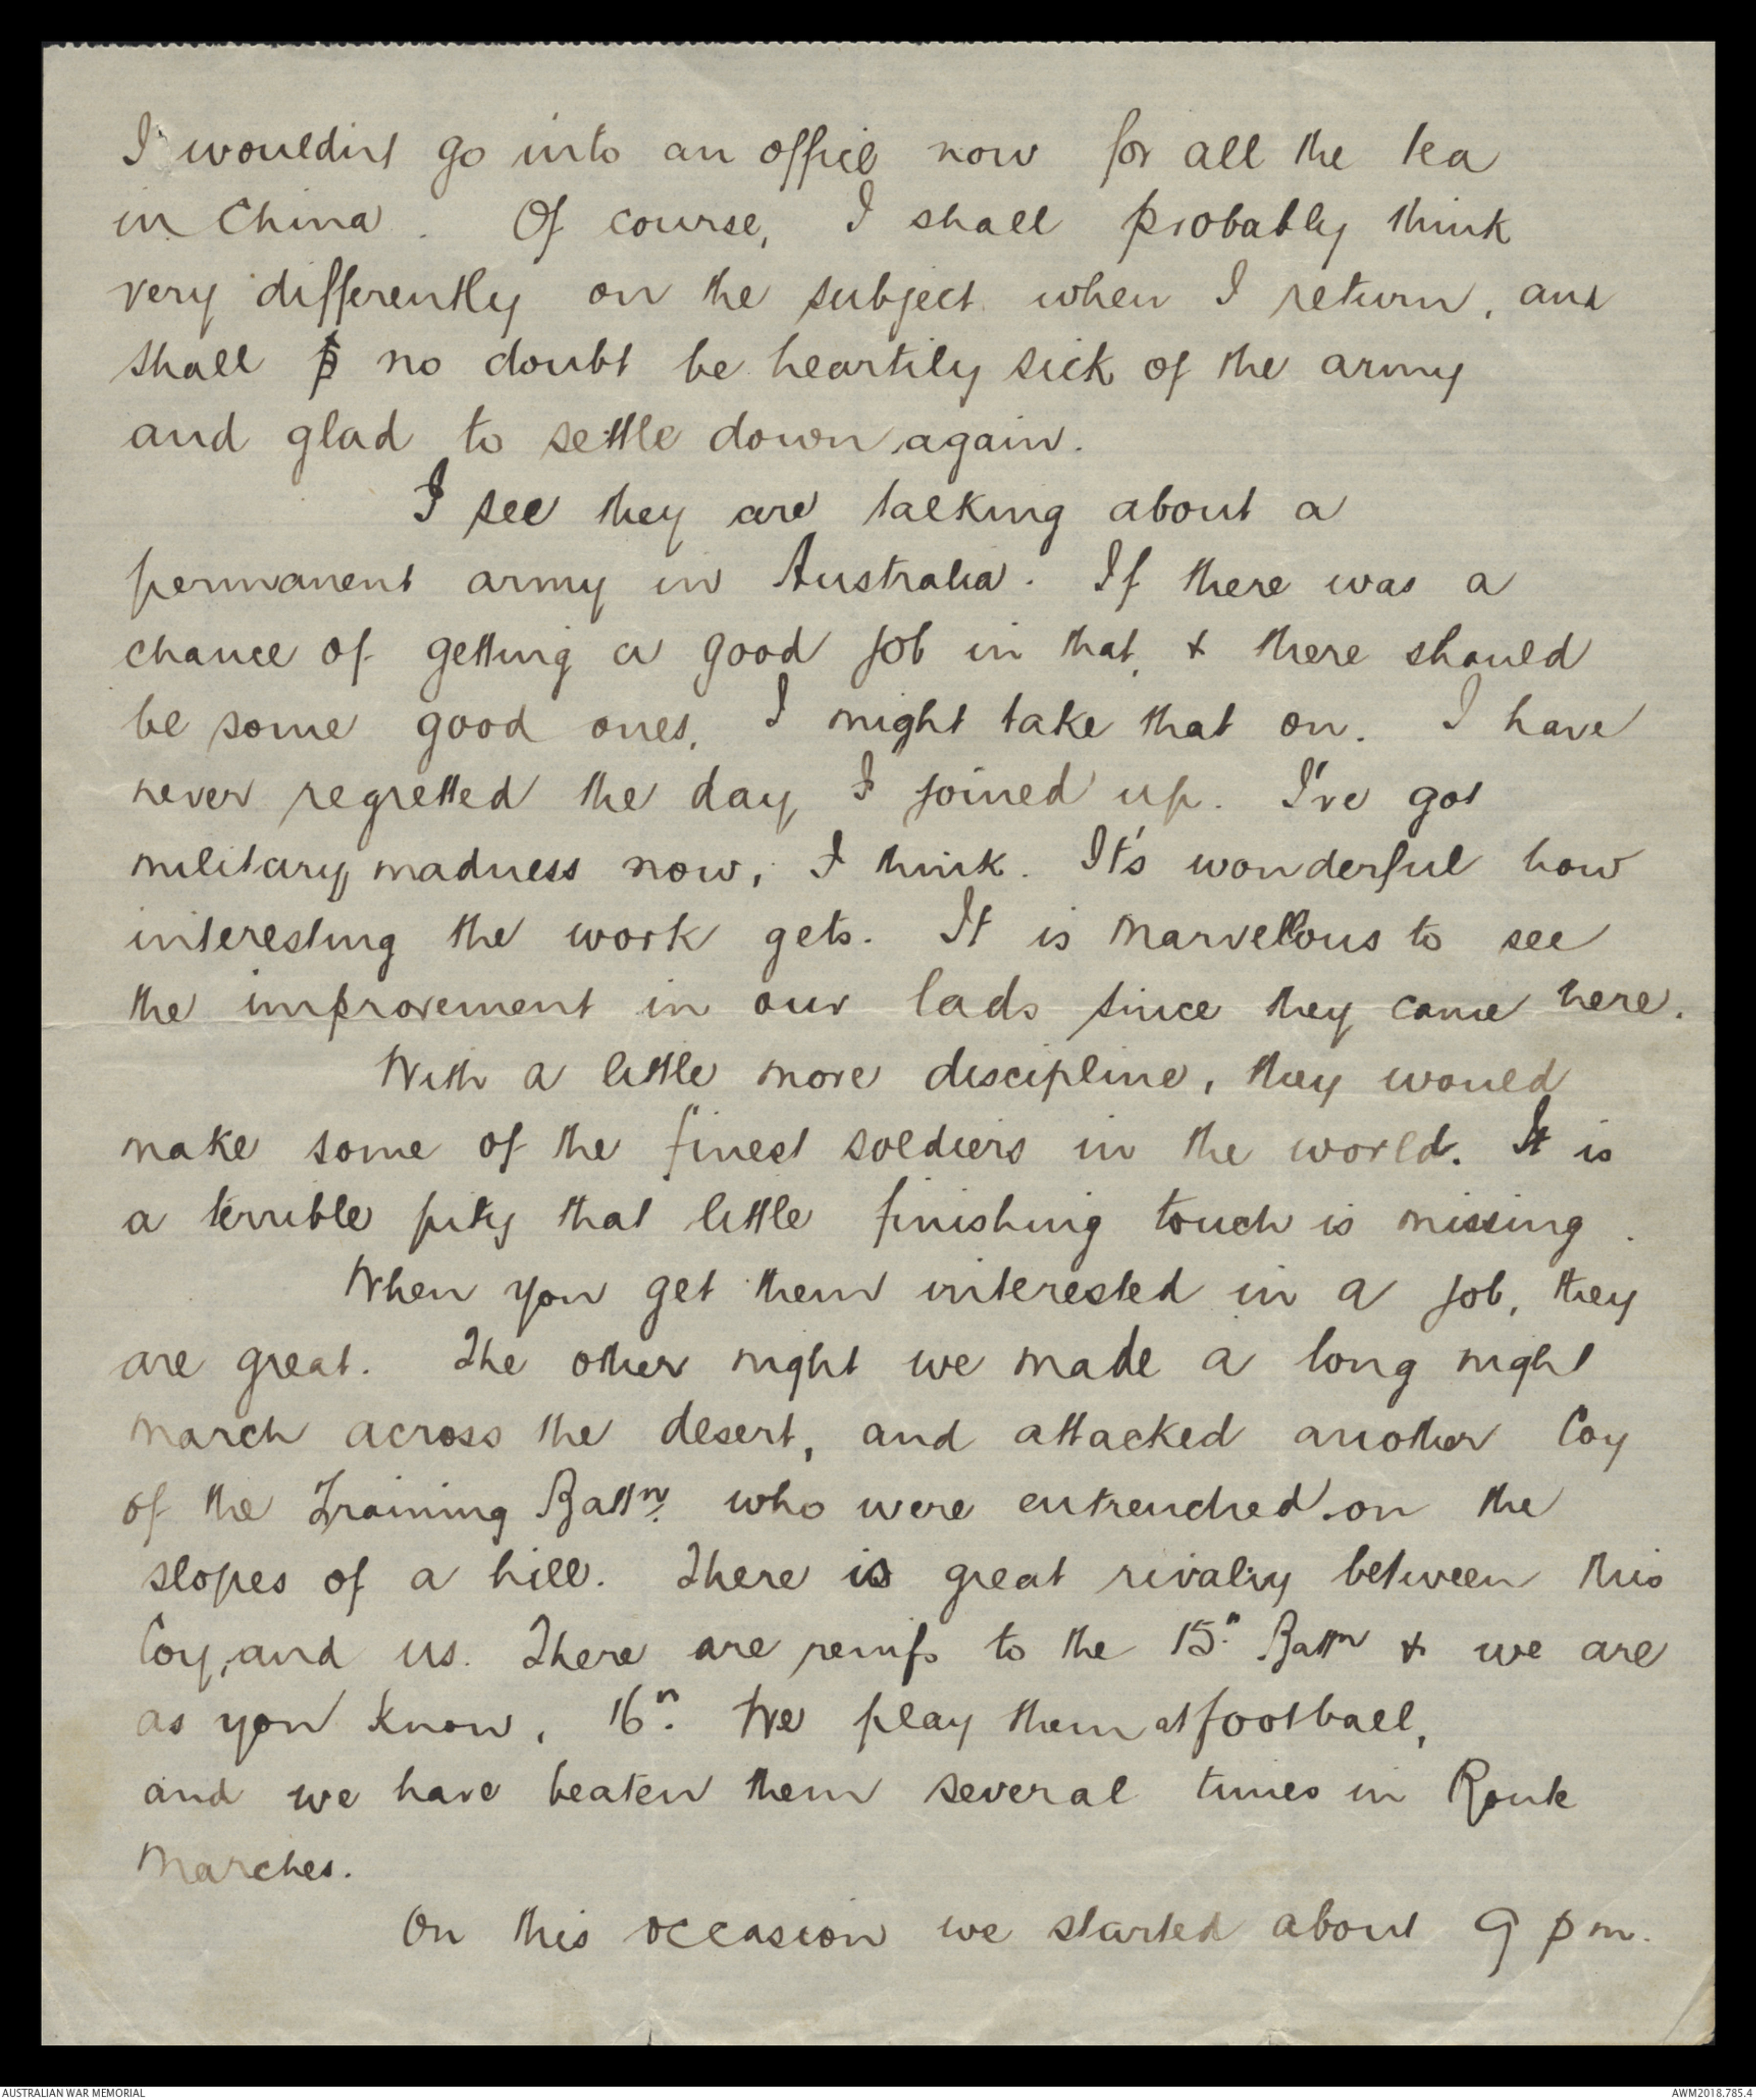 I wouldn't go into an office now for all the tea
in China. Of course, I shall probably think
very differently on the subject when I return, and
shall no doubt be heartily sick of the army
and glad to settle down again.
I see they are talking about a
permanent army in Australia. If there was a
chance of getting a good job in that, & there should
be some good ones, I might take that on. I have
never regretted the day I joined up. I've got
military madness now, I think. It's wonderful how
interesting the work gets. It is marvellous to see
the improvement in our lads since they came here.
With a little more discipline, they would
make some of the finest soldiers in the world. It is
a terrible pity that little finishing touch is missing.
When you get them interested in a job, they
are great. The other night we made a long night
march across the desert, and attacked another Coy
of the Training Battn. who were entrenched on the
slopes of a hill. There is great rivalry between this
Coy, and us. There are reinfs to the 15th Battn & we are
as you know, 16th. We play them at football,
and we have beaten them several times in Route
Marches.
On this occasion we started about 9 pm.
AUSTRALIAN WAR MEMORIAL
AWM2018.785.4